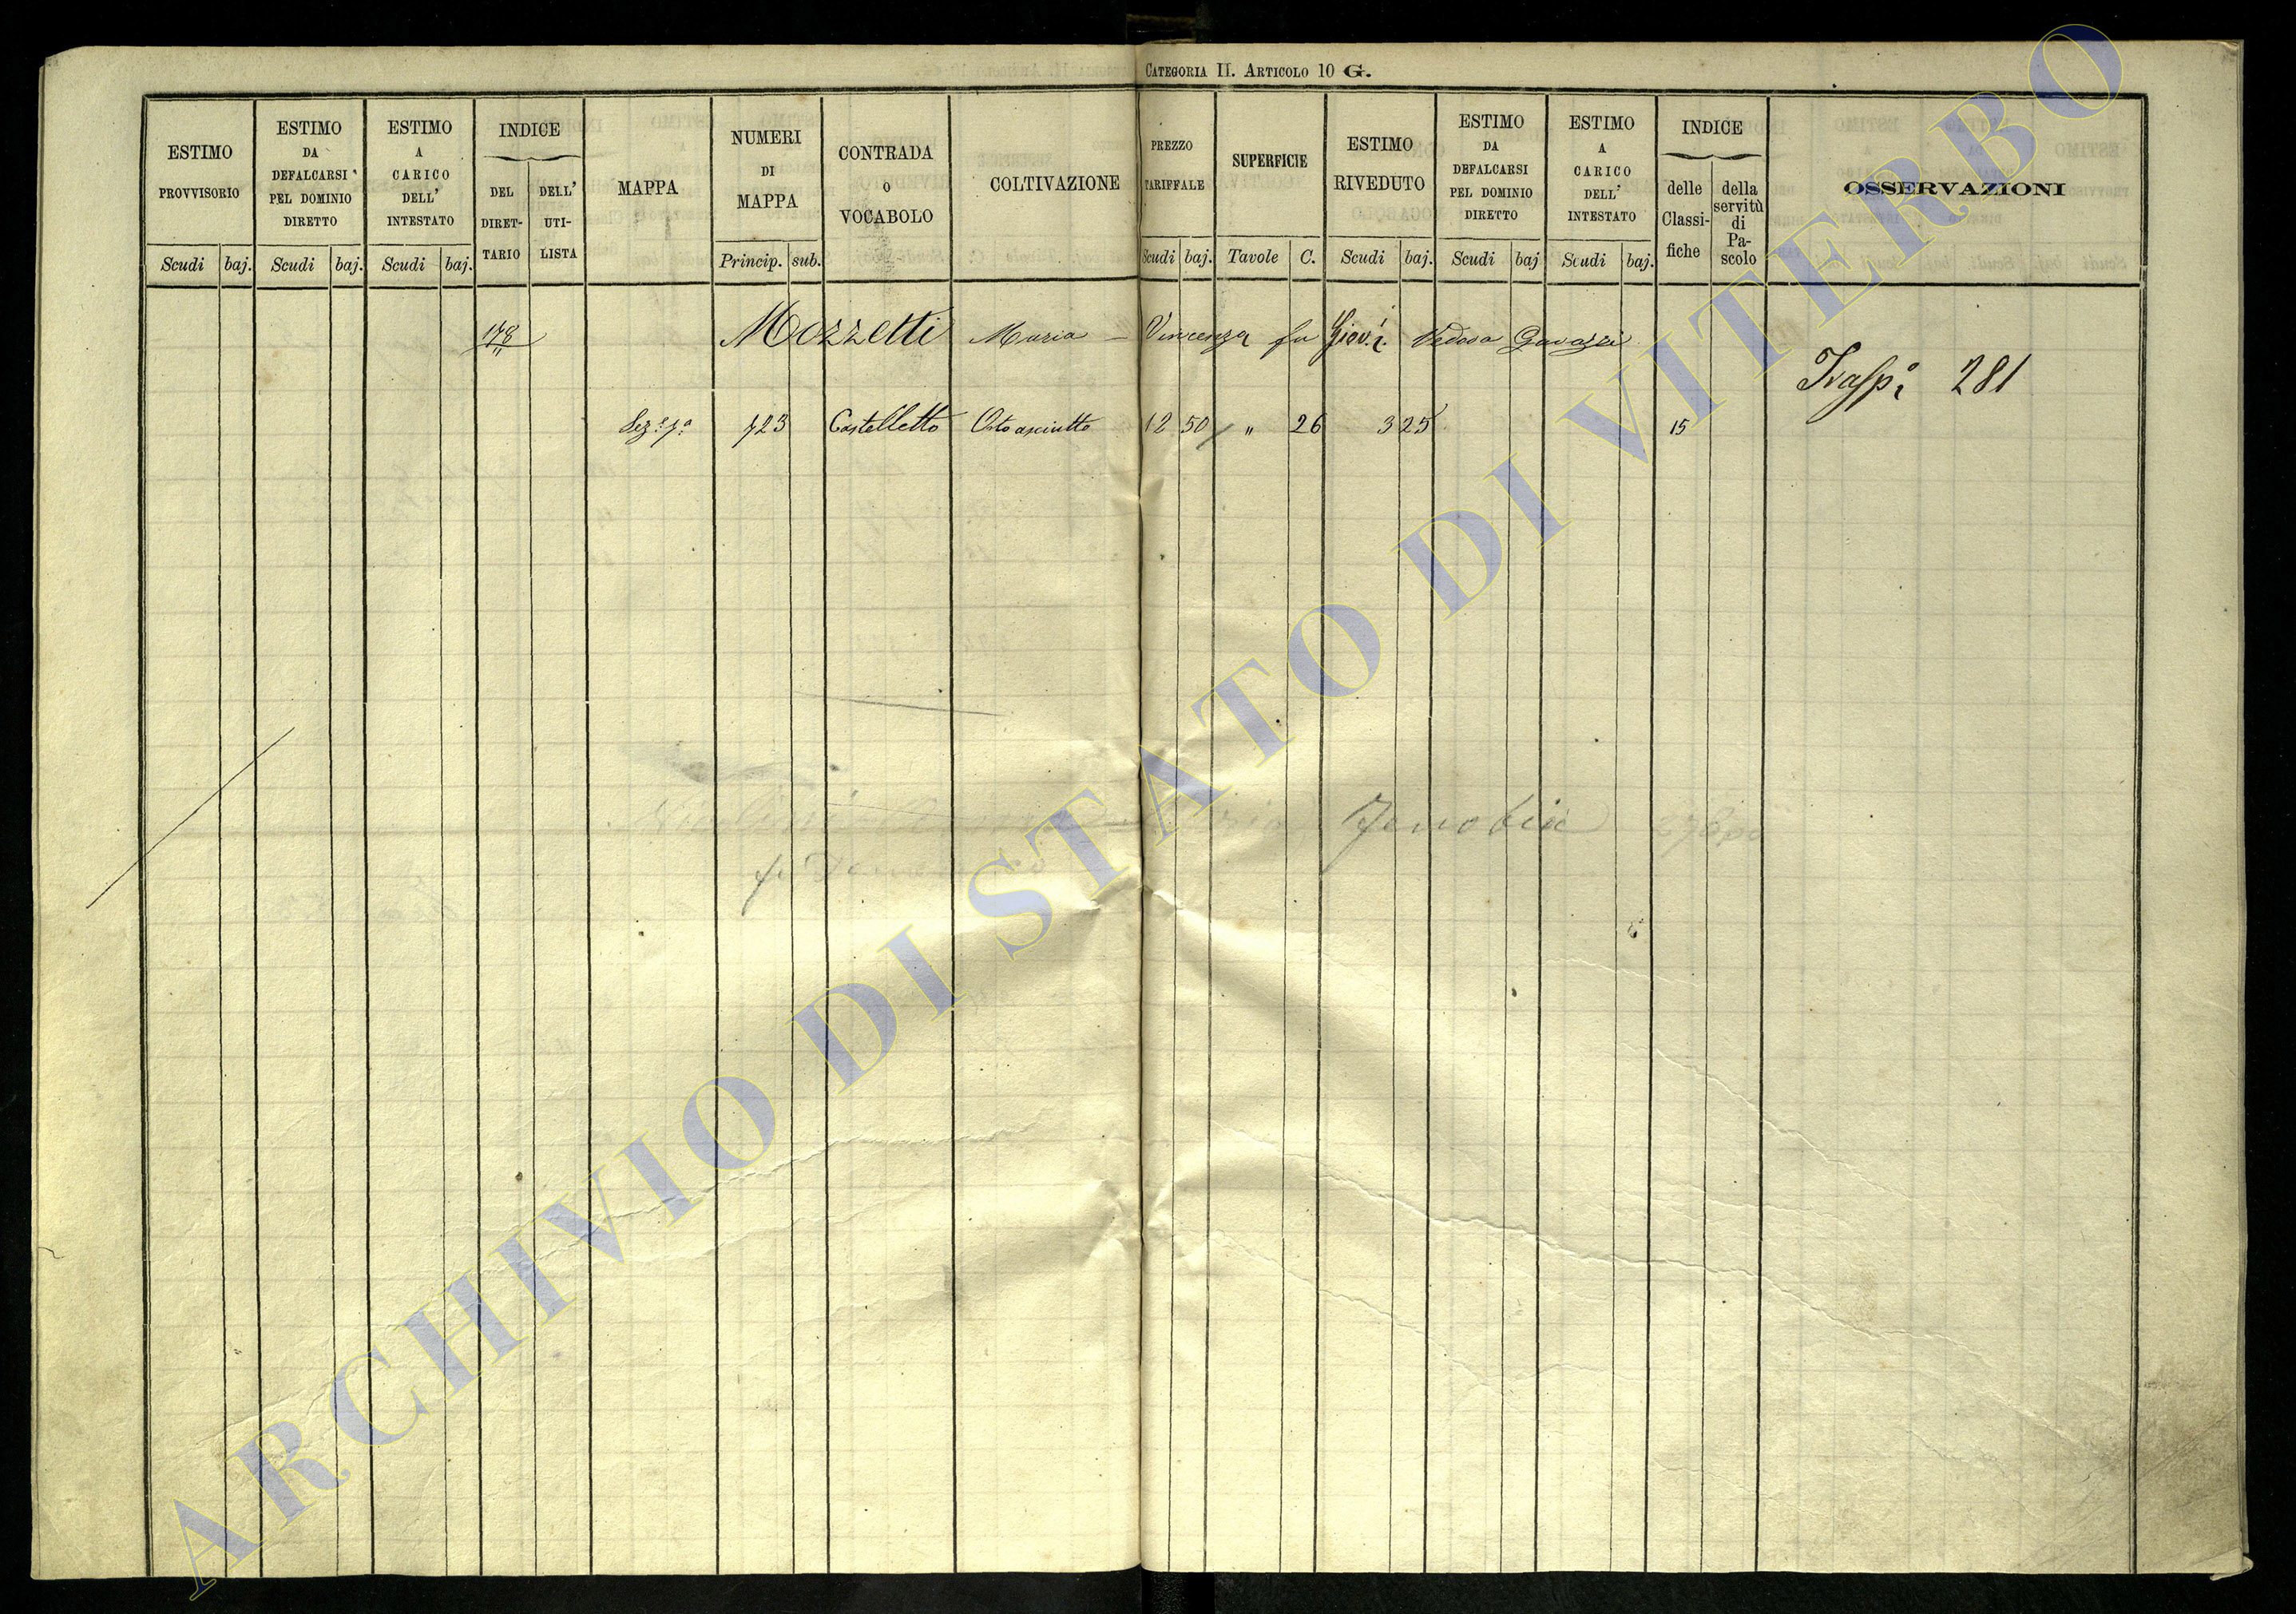 CATEGORIA II. ARTICOLO 10 G.
ESTIMO PROVVISORIO Scudi baj.
ESTIMO DA DEFALCARSI PEL DOMINIO DIRETTO Scudi baj.
ESTIMO A CARICO DELL' INTESTATO Scudi baj.
INDICE DEL DIRET-TARIO DELL' UTI-LISTA
MAPPA
NUMERI DI MAPPA Princip. sub.
CONTRADA O VOCABOLO
COLTIVAZIONE
PREZZO TARIFFALE Scudi baj.
SUPERFICIE Tavole C.
ESTIMO RIVEDUTO Scudi baj.
ESTIMO DA DEFALCARSI PEL DOMINIO DIRETTO Scudi baj
ESTIMO A CARICO DELL' INTESTATO Scudi baj.
INDICE delle Classi-fiche della servitù di Pa-scolo
OSSERVAZIONI
178 Mozzetti Maria – Vincenza fu Giov. Vedova Gavazzi
Trasp. 281
Sez. 7a 723 Castelletto Orto asciutto 12 50 " 26 3 25 15
Zenobia
ARCHIVIO DI STATO DI VITERBO